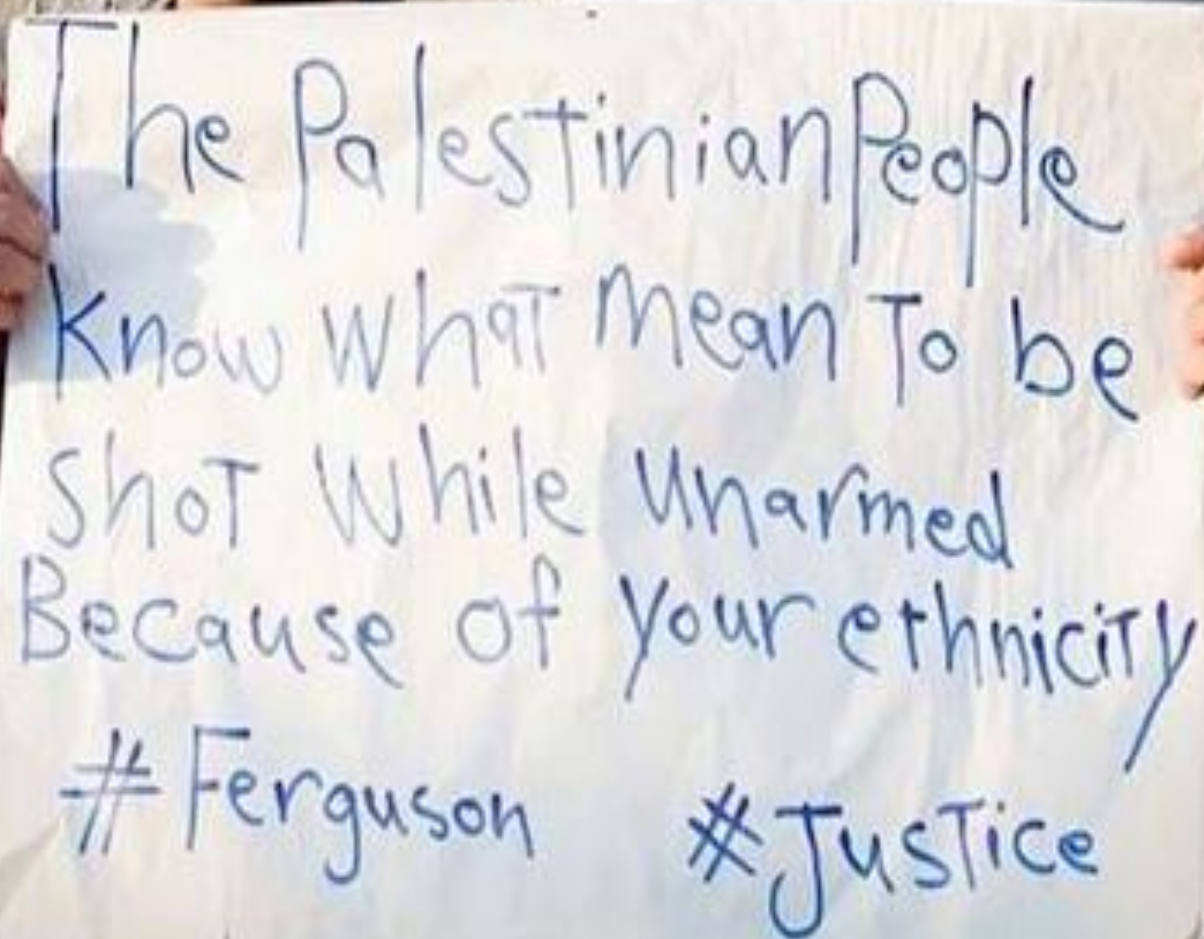 The Palestinian People
Know What mean To be
Shot While Unarmed
Because of Your ethnicity
#Ferguson #Justice